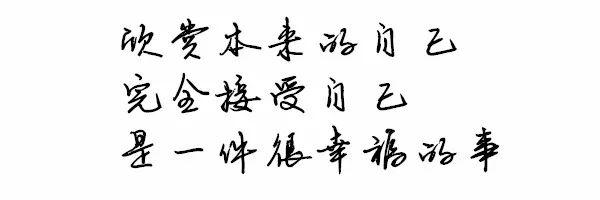 欣赏本来的自己
完全接受自己
是一件很幸福的事